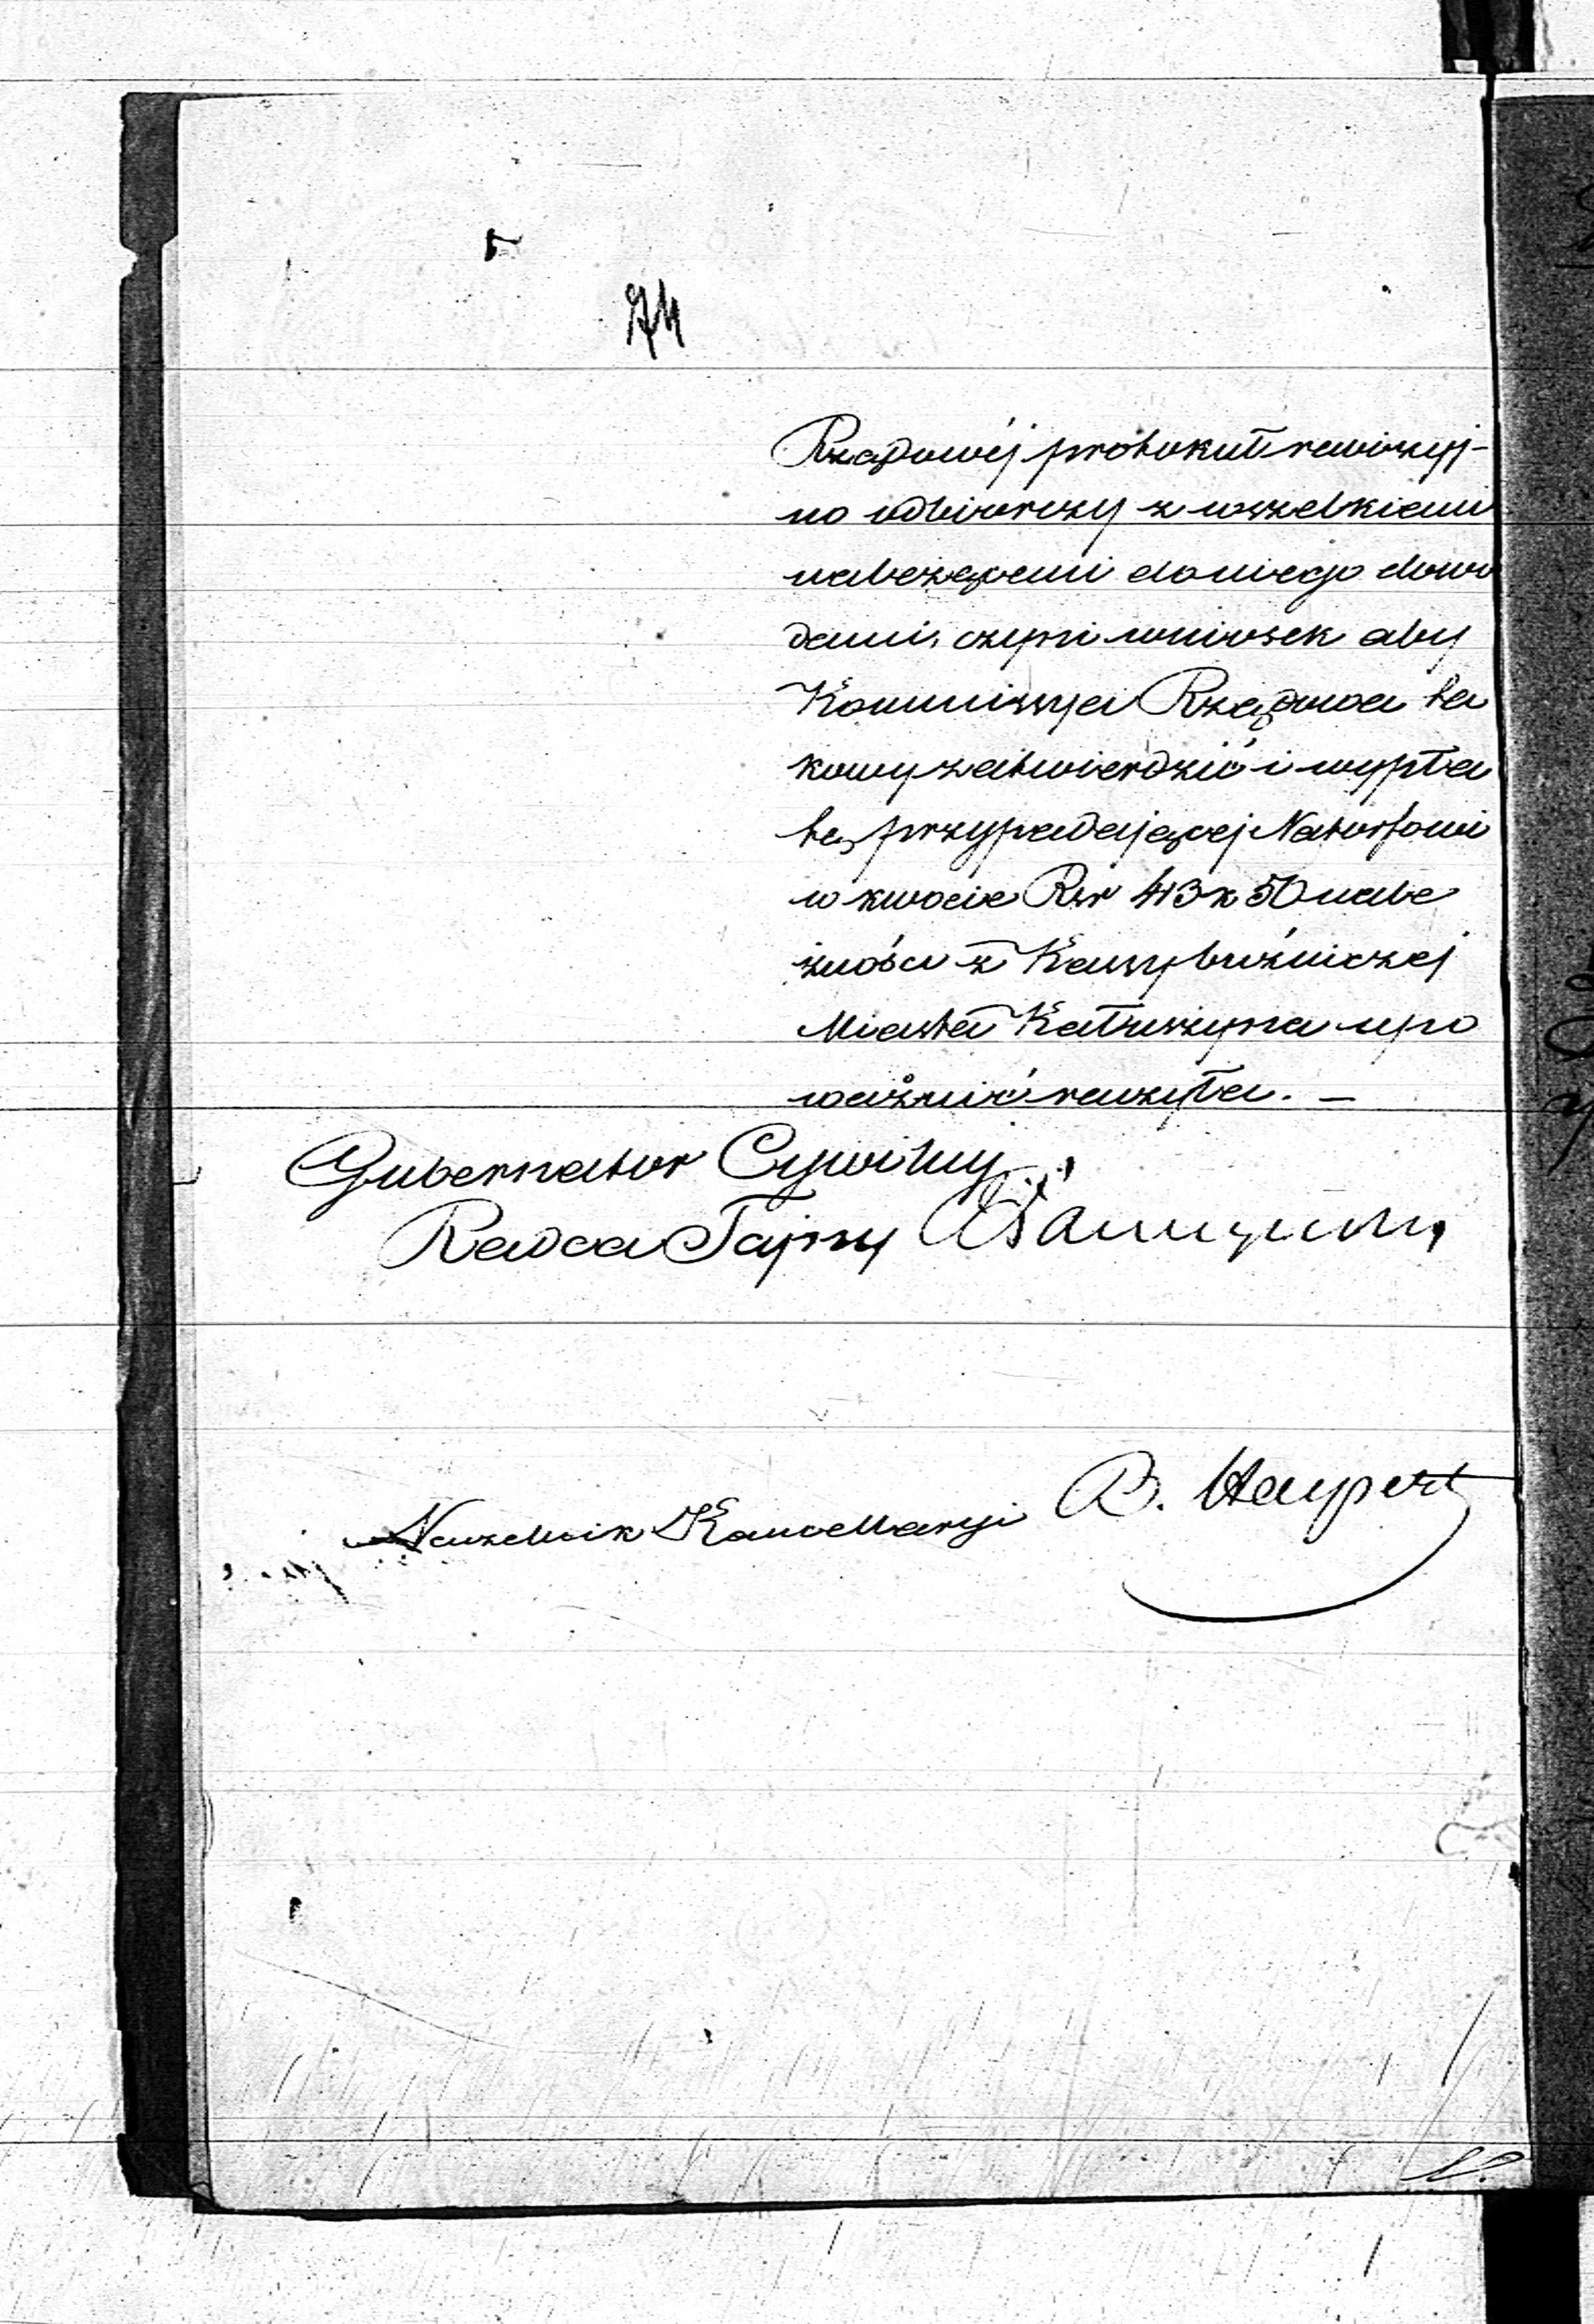 74
Rządowéj protokuł rewizyj-
no odbiorczy z wszelkiemi
należącemi do niego dowo
dami, czyni wniosek aby
Kommissya Rządowa ta
kowy zatwierdzić i wypła
tę przypadającej Natorfowi
w kwocie Rsr 43 k 50 nale
żności z Kassy bóżniczej
Miasta Kałuszyna upo
ważnić raczyła. —
Gubernator Cywilny
Radca Tajny
Naczelnik Kancellaryi